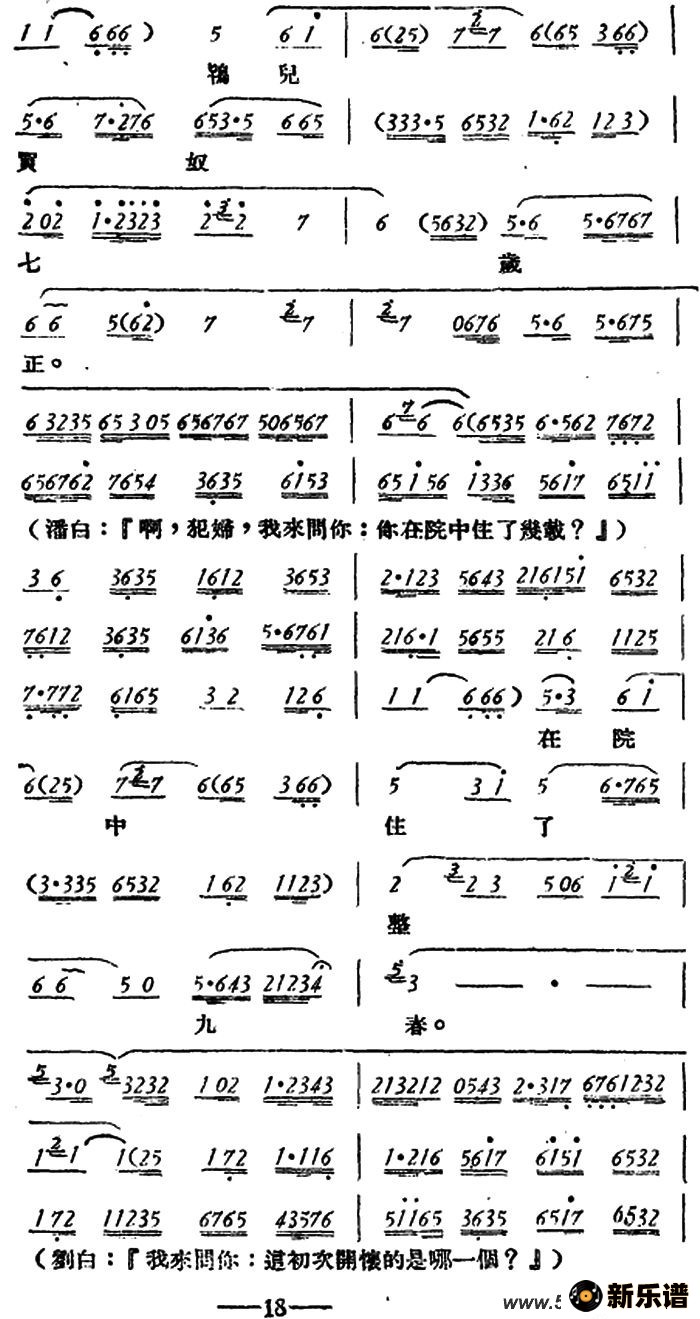 1 1 6 6 6 ) 5 6 1 | 6 (2 5) 7 2 7 6 (6 5 3 6 6)
鴇 兒
5·6 7·2 7 6 6 5 3·5 6 6 5 | (3 3 3·5 6 5 3 2 1·6 2 1 2 3)
買 奴
2 0 2 1·2 3 2 3 2 3 2 7 | 6 (5 6 3 2) 5·6 5·6 7 6 7
七 歲
6 6 5 (6 2) 7 2 7 | 2 7 0 6 7 6 5·6 5·6 7 5
正。
6 3 2 3 5 6 5 3 0 5 6 5 6 7 6 7 5 0 6 5 6 7 | 6 7 6 6 (6 5 3 5 6·5 6 2 7 6 7 2
6 5 6 7 6 2 7 6 5 4 3 6 3 5 6 1 5 3 | 6 5 1 5 6 1 3 3 6 5 6 1 7 6 5 1 1
(潘白：『啊，犯婦，我來問你：你在院中住了幾載？』)
3 6 3 6 3 5 1 6 1 2 3 6 5 3 | 2·1 2 3 5 6 4 3 2 1 6 1 5 1 6 5 3 2
7 6 1 2 3 6 3 5 6 1 3 6 5·6 7 6 1 | 2 1 6·1 5 6 5 5 2 1 6 1 1 2 5
7·7 7 2 6 1 6 5 3 2 1 2 6 | 1 1 6 6 6 ) 5·3 6 1
在 院
6 (2 5) 7 2 7 6 (6 5 3 6 6) | 5 3 1 5 6·7 6 5
中 住 了
(3·3 3 5 6 5 3 2 1 6 2 1 1 2 3) | 2 3 2 3 5 0 6 1 2 1
整
6 6 5 0 5·6 4 3 2 1 2 3 4 | 5 3 — · —
九 春。
5 3·0 5 3 2 3 2 1 0 2 1·2 3 4 3 | 2 1 3 2 1 2 0 5 4 3 2·3 1 7 6 7 6 1 2 3 2
1 2 1 1 (2 5 1 7 2 1·1 1 6 | 1·2 1 6 5 6 1 7 6 1 5 1 6 5 3 2
1 7 2 1 1 2 3 5 6 7 6 5 4 3 5 7 6 | 5 1 1 6 5 3 6 3 5 6 5 1 7 0 5 3 2
(劉白：『我來問你：這初次開懷的是哪一個？』)
—18—
www.5
新乐谱